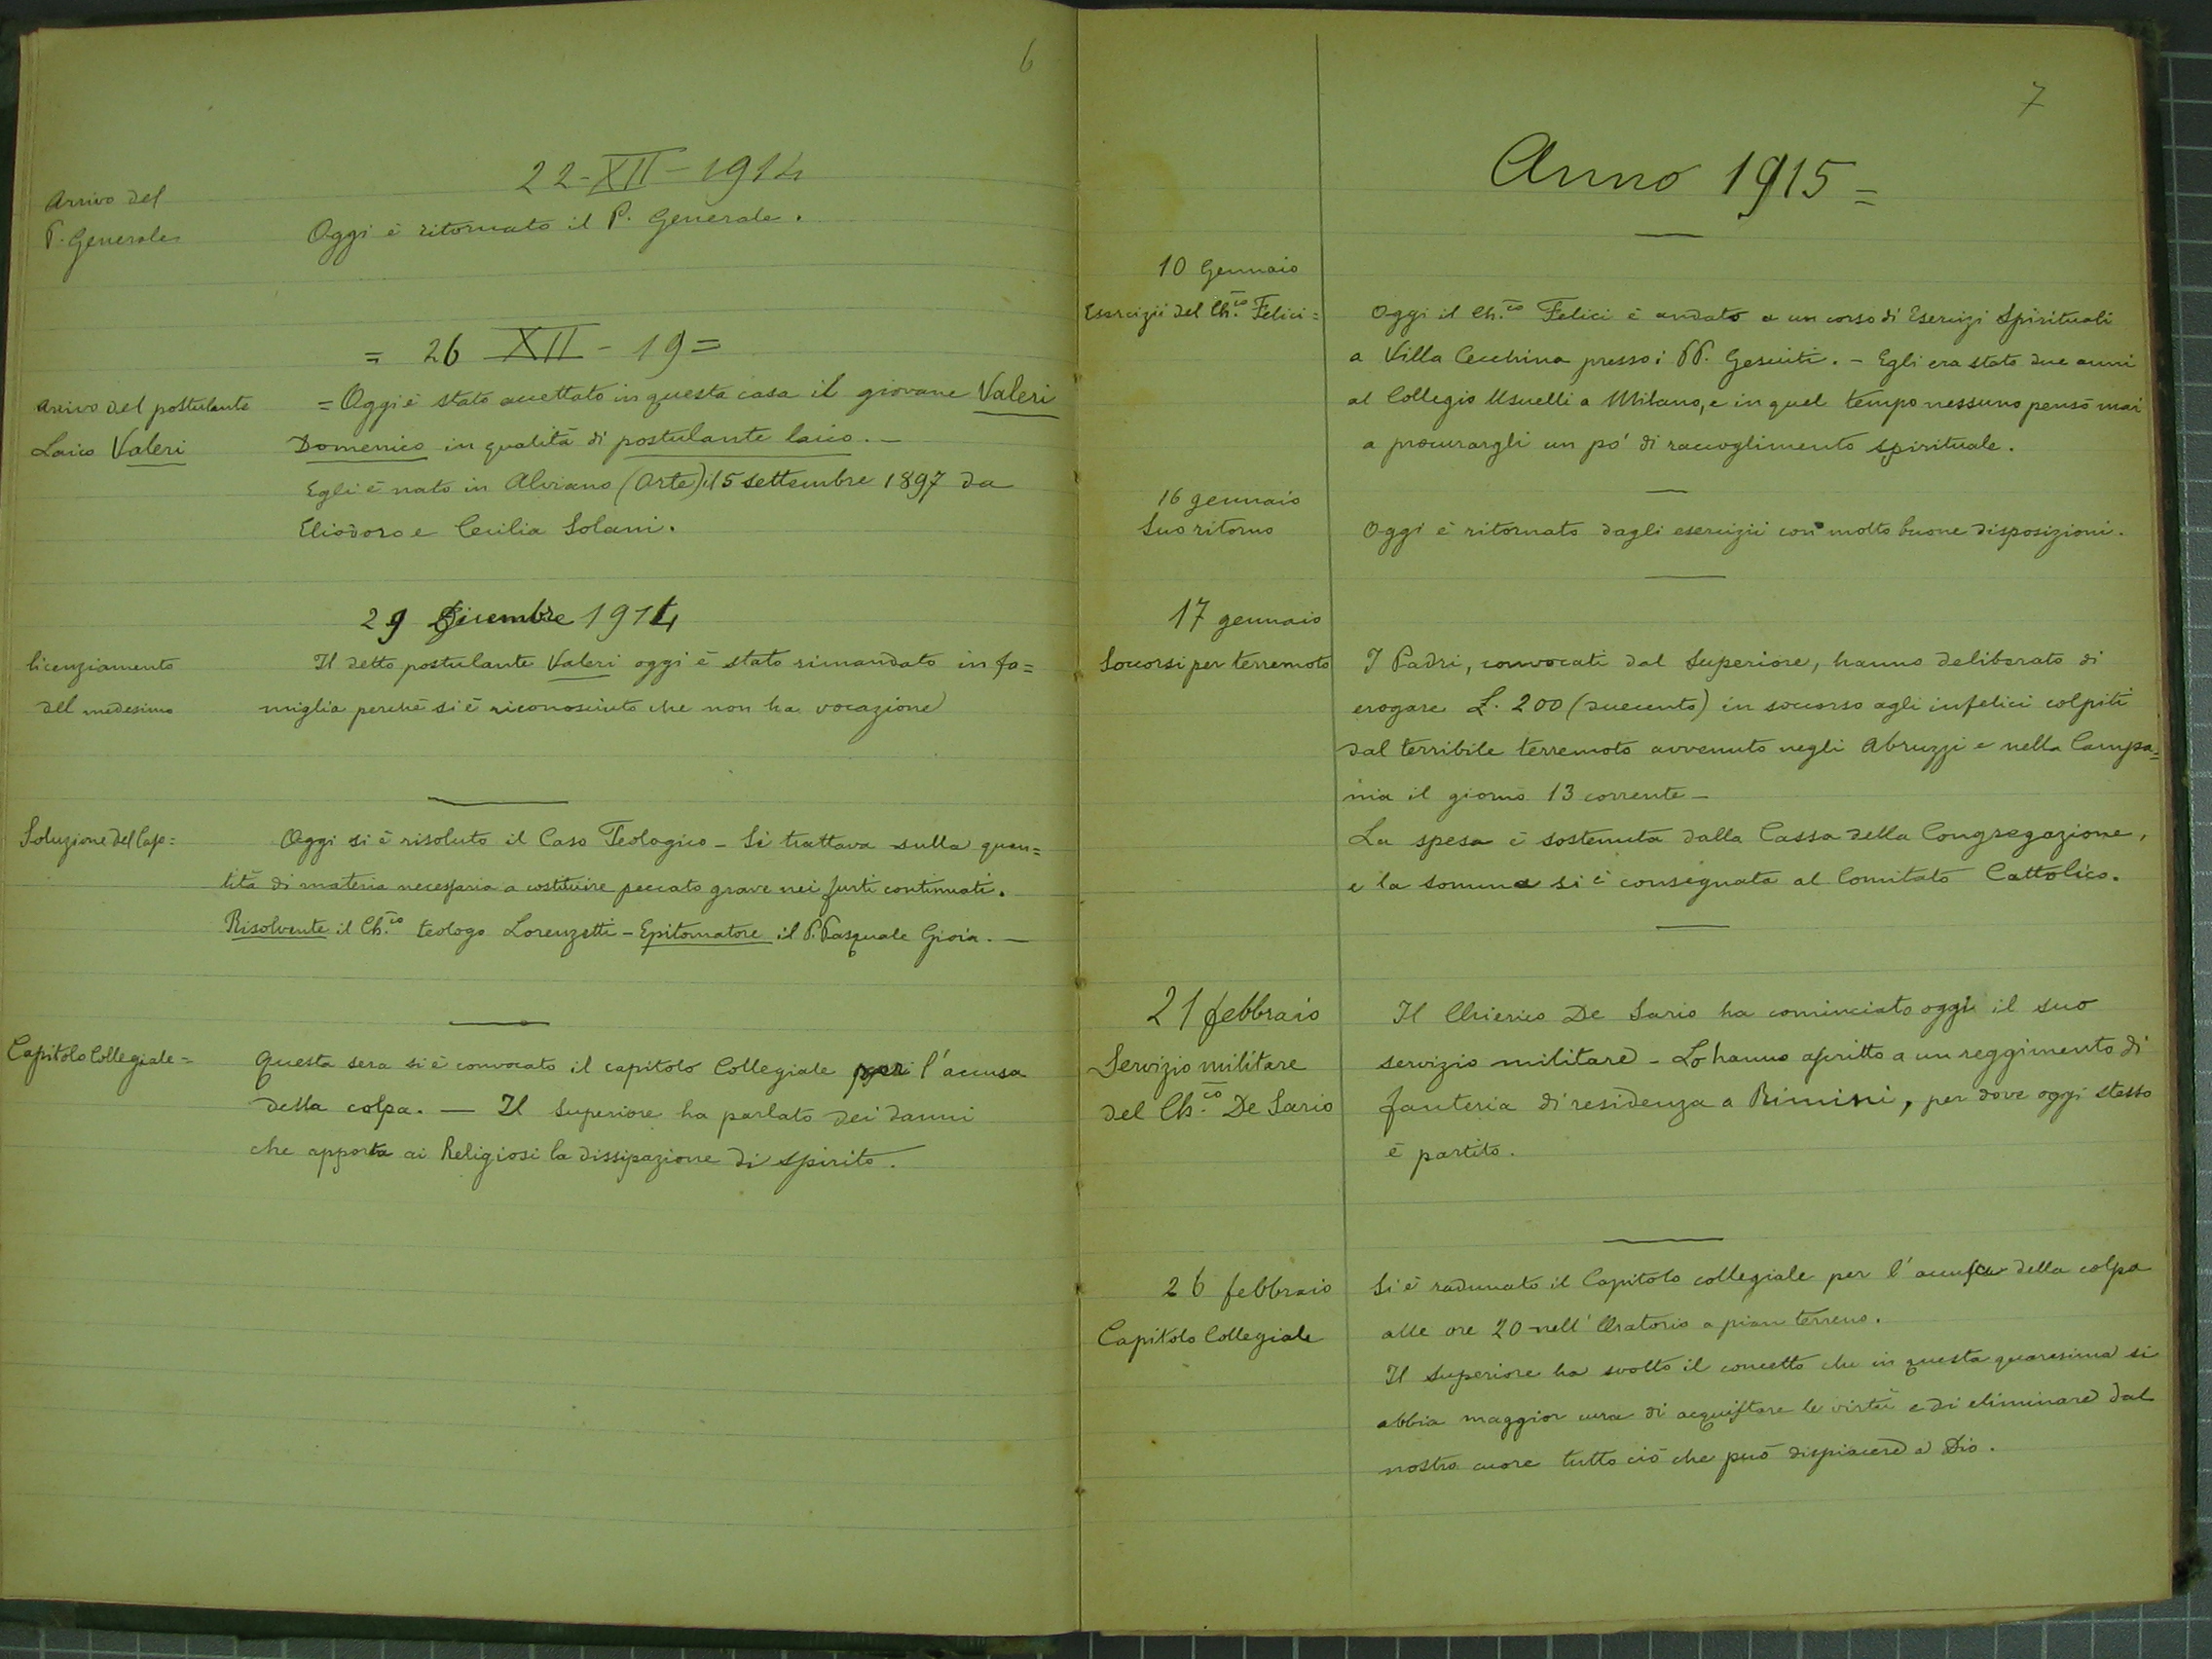 6
22-XII-1914
Arrivo del
P. Generale
Oggi è ritornato il P. Generale.
= 26 XII - 19=
Arrivo del postulante
Laico Valeri
= Oggi è stato accettato in questa casa il giovane Valeri
Domenico in qualità di postulante laico. —
Egli è nato in Alviano (Orte) il 5 settembre 1897 da
Eliodoro e Cecilia Solani.
29 Dicembre 1914
licenziamento
del medesimo
Il detto postulante Valeri oggi è stato rimandato in fa=
miglia perché si è riconosciuto che non ha vocazione
Soluzione del Caso=
Oggi si è risoluto il Caso Teologico - Si trattava sulla quan=
tità di materia necessaria a costituire peccato grave nei furti continuati.
Risolvente il Ch.co teologo Lorenzetti - Epitomatore il P. Pasquale Gioia. —
Capitolo Collegiale=
Questa sera si è convocato il capitolo Collegiale per l'accusa
della colpa. — Il Superiore ha parlato dei danni
che apporta ai Religiosi la dissipazione di spirito.
7
Anno 1915=
10 Gennaio
Esercizii del Ch.co Felici=
Oggi il Ch.co Felici è andato a un corso di Esercizi Spirituali
a Villa Cecchina presso i PP. Gesuiti. - Egli era stato due anni
al Collegio Usuelli a Milano, e in quel tempo nessuno pensò mai
a procurargli un po' di raccoglimento spirituale.
16 gennaio
Suo ritorno
Oggi è ritornato dagli esercizii con molto buone disposizioni.
17 gennaio
Soccorsi per terremoto
I Padri, convocati dal Superiore, hanno deliberato di
erogare L. 200 (duecento) in soccorso agli infelici colpiti
dal terribile terremoto avvenuto negli Abruzzi e nella Campa=
nia il giorno 13 corrente -
La spesa è sostenuta dalla Cassa della Congregazione,
e la somma si è consegnata al Comitato Cattolico.
21 febbraio
Servizio militare
del Ch.co De Sario
Il Chierico De Sario ha cominciato oggi il suo
servizio militare - Lo hanno ascritto a un reggimento di
fanteria di residenza a Rimini, per dove oggi stesso
è partito.
26 febbraio
Capitolo Collegiale
Si è radunato il Capitolo collegiale per l'accusa della colpa
alle ore 20 nell'Oratorio a pian terreno.
Il Superiore ha svolto il concetto che in questa quaresima si
abbia maggior cura di acquistare le virtù e di eliminare dal
nostro cuore tutto ciò che può dispiacere a Dio.